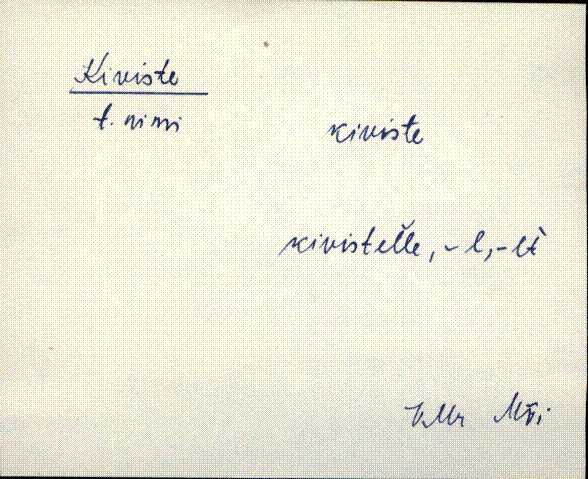 Kiviste
t. nimi
kiviste
kivistel̆le, -l, -lt̀